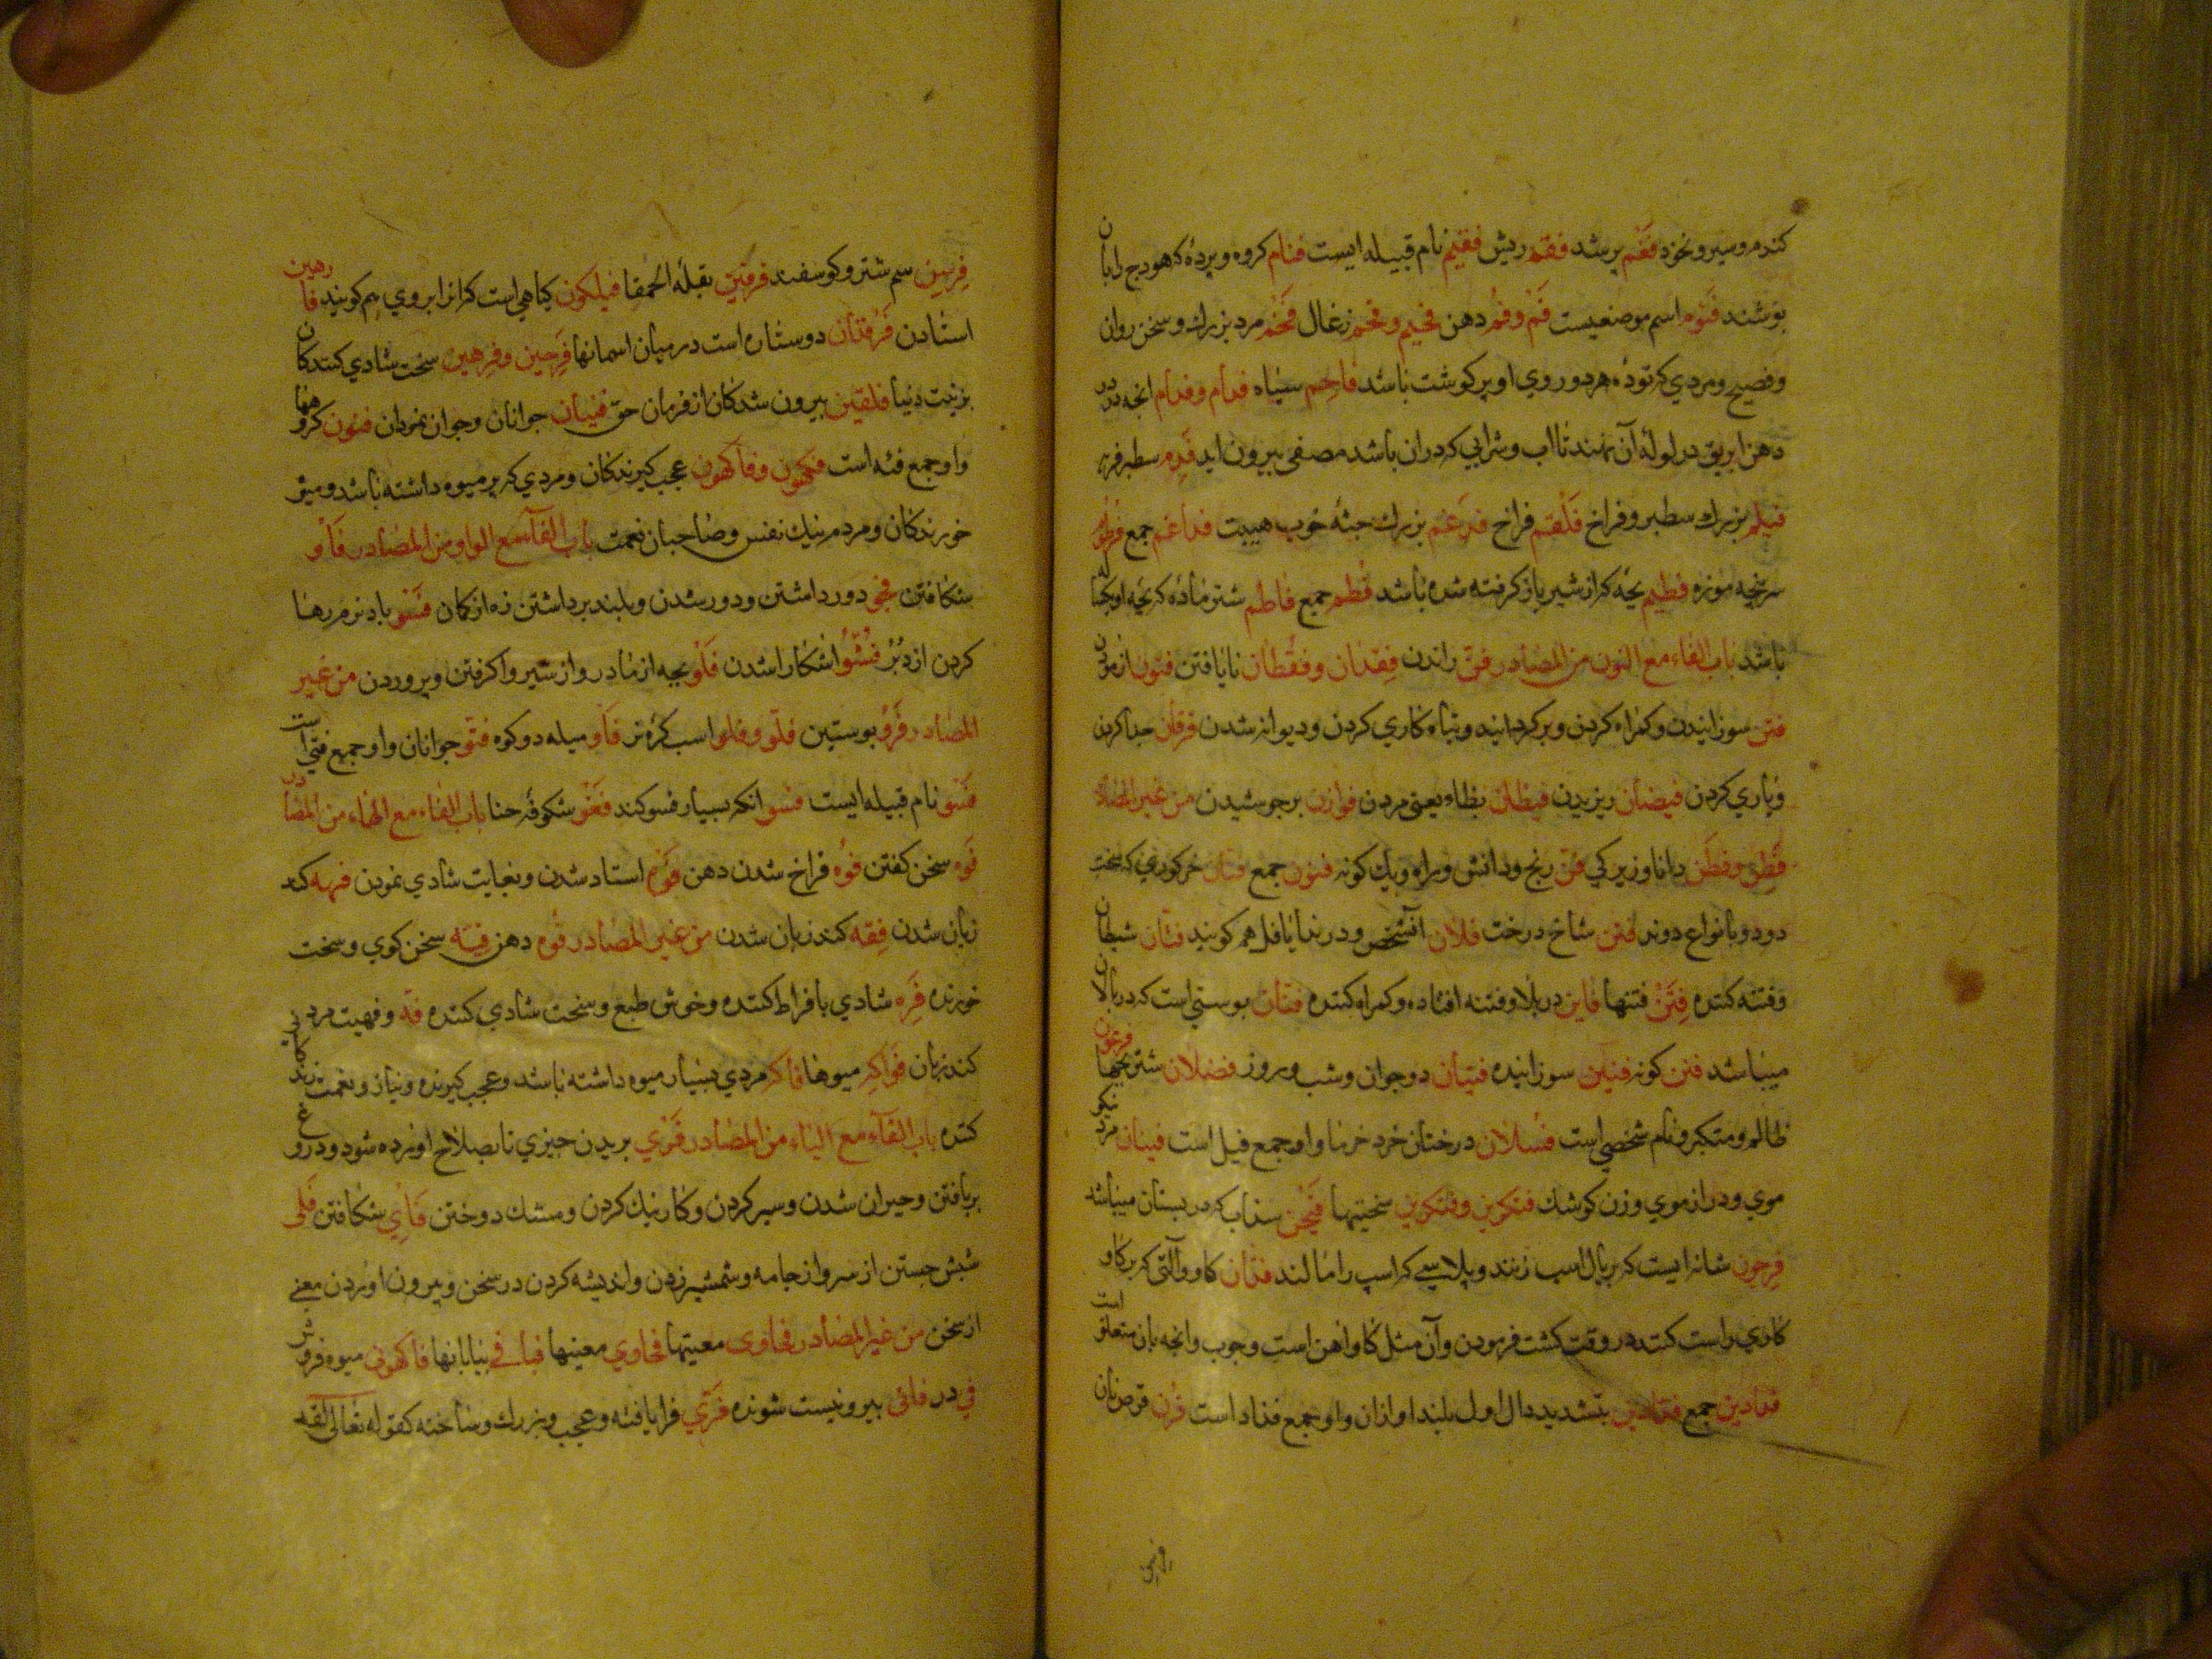 كندم وسير ونخود فقم پر شد فقم ريش فقيم نام قبيله ايست فئام كروه وپرده كه هودج را بان
پوشند فئوم اسم موضعيست فم وفم دهن فحيم وفحم زغال فخم مرد بزرك وسخن روان
وفصيح ومردي كه توده هر دو روي او پر كوشت باشد فاحم سياه فدام وفدام انچه در
دهن ابريق در لوله آن نهند تا اب وشرابي كه دران باشد مصفى بيرون ايد فدم سطبر فربه
فيلم بزرك سطبر وفراخ فلقم فراخ فدغم بزرك جثه خوب هيبت فداغم جمع
سرپنجه موزه فطيم بچه كه از شير باز كرفته شده باشد فطم جمع فاطم شتر ماده كه بچه او
باشد باب الفاء مع النون من المصادر فن راندن فقدان وفقطان نايافتن فتون ازمودن
فتن سوزانيدن وكمراه كردن وبركردانيد وتباه كاري كردن وديوانه شدن فرقان جدا كردن
وياري كردن فيضان ريزيدن فيظان بظاء يعنى مردن فوران برجوشيدن من غير المصادر
فطن وفطن دانا وزيركي فن رنج ودانش وراه ويك كونه فنون جمع فنان خر كوري كه سخت
دود وبانواع دوند فنن شاخ درخت فلان آن شخص ودر ندا يا فل هم كويند فتان شيطان
وفتنه كننده فتن فتنها فاتن در بلا وفتنه افتاده وكمراه كننده فتان پوستي است كه در پالان
ميباشد فتن كونه فتين سوزانيده فتيان دو جوان وشب وروز فصلان شتر بچها فرعون
ظالم ومتكبر ونام شخصي است فسلان درختان خرد خرما واو جمع فيل است فينان مرد نيكو
موي ودراز موي وزن كوشك فتكرين وفتكرين سختيها فيجن سذاب كه در بستان ميباشد
فرجون شانه ايست كه بر يال اسپ زنند وپلاسي كه اسپ را مالند فدان كاو وآلتي كه بر كاو
كاري راست كنند در وقت كشت فرمودن وآن مثل كاو اهن است وجوب وانچه بان متعلق است
فدادين جمع فدادين بتشديد دال اول بلند اوازان واو جمع فداد است فرن قرص نان
فرسن سم شتر وكوسفند فرفين بقلة الحمقا فيلكون كياهي است كه انرا بروي هم كويند فارهين
استادن فرقدان دو ستاره است در ميان اسمانها فرحين وفرهين سخت شادي كنندكان
بزينت دنيا فلقين بيرون شدكان از فرمان حق فتيان جوانان وجوان نمردان فئون كروهها
واو جمع فئه است فكهون وفاكهون عجب كيرندكان ومردي كه پر ميوه داشته باشد وميوه
خورندكان ومردم نيك نفس وصاحبان نعمت باب الفاء مع الواو من المصادر فاو
شكافتن فجو دور داشتن ودور شدن وبلند برداشتن زه از كمان فسو باد نرم رها
كردن از دبر فشو اشكارا شدن فلو بچه از مادر واز شير واكرفتن وپروردن من غير
المصادر فرو پوستين فلو وفلو اسب كره نر فاو ميله دو كوه فتو جوانان واو جمع فتي است
فسو نام قبيله ايست فسو انكه بسيار فسو كند فغو شكوفه حنا باب الفاء مع الهاء من المصادر
فوه سخن كفتن فوه فراخ شدن دهن فره استاد شدن وبغايت شادي نمودن فهه كند
زبان شدن فقه كند زبان شدن من غير المصادر فوه دهن فيه سخن كوي وسخت
خورنده فره شادي بافراط كننده وخوش طبع وسخت شادي كننده فه وفهيت مرد
كند زبان فواكه ميوها فاكه مردي بسيار ميوه داشته باشد وعجب كيرنده ونياز ونعمت زندكاني
كننده باب الفاء مع الياء من المصادر فري بريدن چيزي تا بصلاح اورده شود ودروغ
بربافتن وحيران شدن وسير كردن وكار نيك كردن ومشك دوختن فاي شكافتن فلى
شپش جستن از سر واز جامه وشمشير زدن وانديشه كردن در سخن وبيرون اوردن معني
از سخن من غير المصادر فحاوى معنيها فحاوي معنيها فيافي بيابانها فاكهون ميوه فروش
في در فانى پير ونيست شونده فري فرا يافته وعجب وبزرك وساخته كقوله تعالى لقد